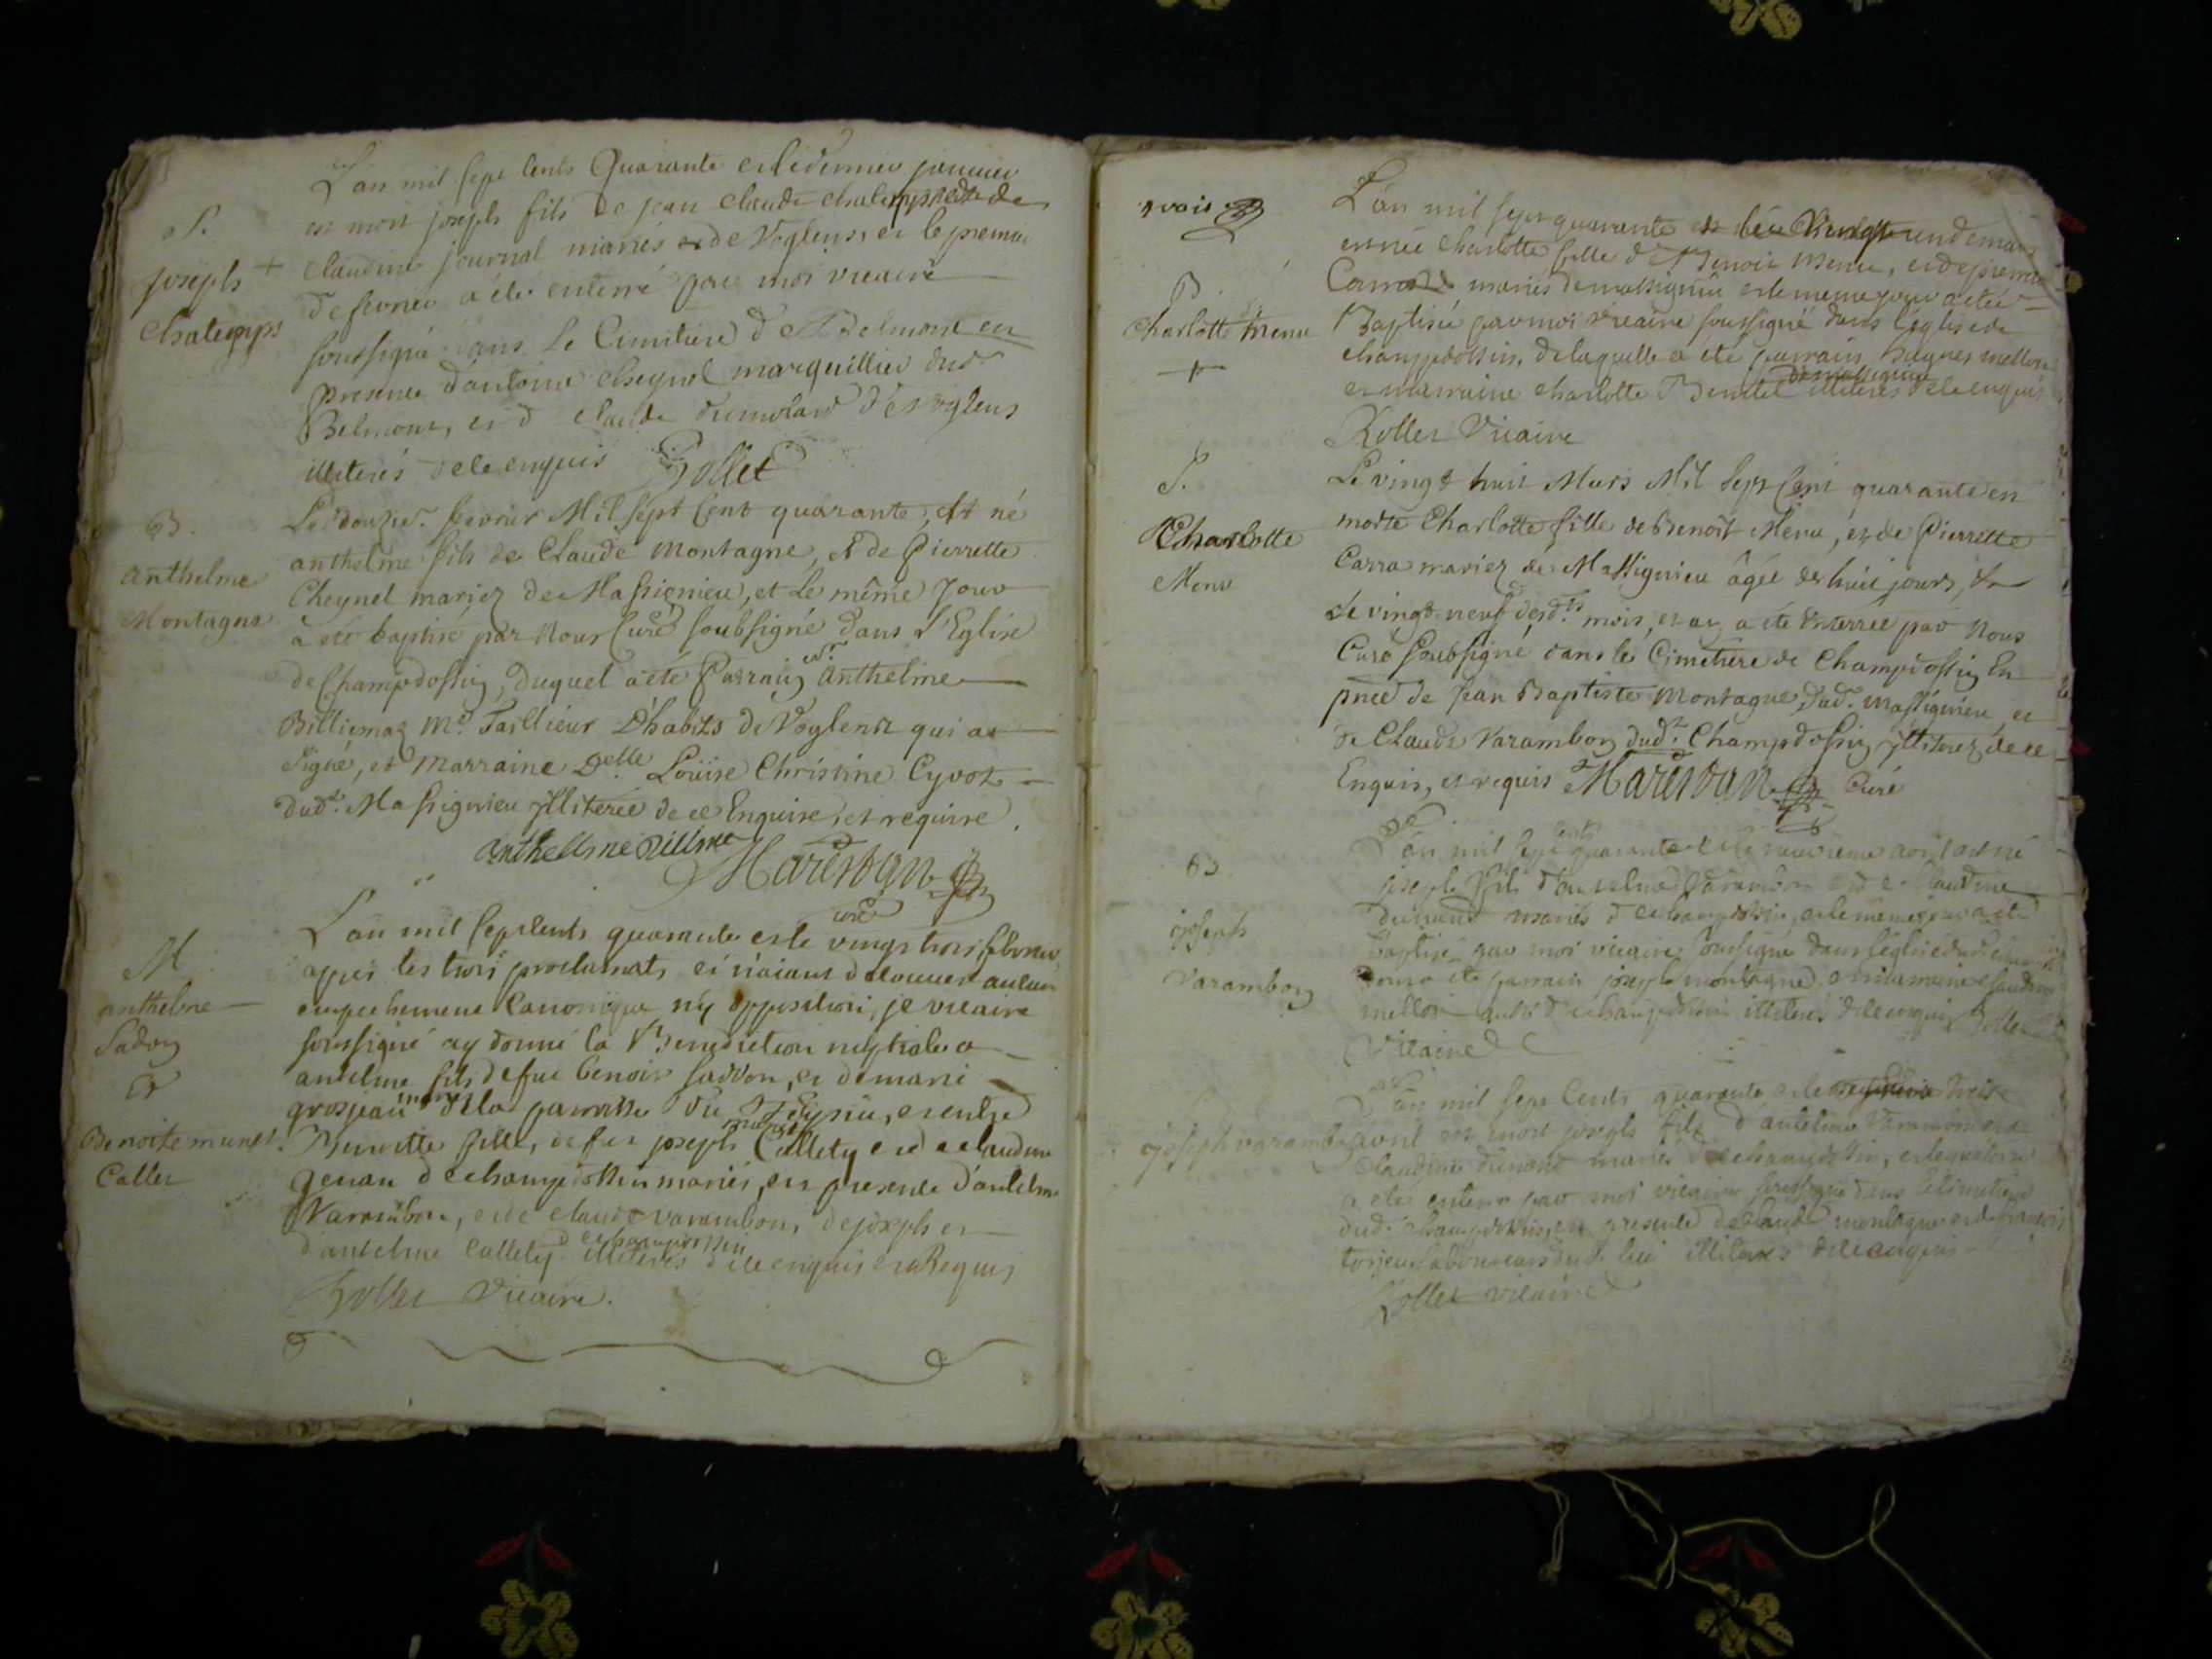 S.
Joseph +
Chatemps
L'an mil sept cents Quarante et le dernier janvier
est mort joseph fils de jean claude
claudine journal mariés de Voglens, et le premier
de fevrier a été enterré par moi vicaire
soussigné dans le Cimitiere de Belmont en
presence d'antoine cheynel marguillier dud.
Belmont, et d claude dumolard de voglens
illiterés de ce enquis Rollet
B.
anthelme
Montagne
Le douzie. fevrier Mil sept Cent quarante, est né
anthelme fils de Claude Montagne, et de Pierrette
Cheynel mariez de Massignieu, et le même Jour
a eté baptisé par Nous Curé soubsigné dans L'Eglise
de Champdossin, duquel a été Parrain anthelme
Billiemaz Me. Taillieur D'habits de Voglens qui a
signé, et Marraine Delle Loüise Christine Cyvot
dud. Massignieu jlliterée de ce Enquise, et requise.
Marestan
curé
M
anthelme
Sadon
et
Benoite munet
Callet
L'an mil sept cents quarante et le vingt trois febvrier
apres les trois proclamats et n'aiant decouvert aucun
empechement Canonique ny opposition, je vicaire
soussigné ay donné la Benediction nuptiale a
antelme fils de feu benoit sadon, et de marie
grosjean de la parroisse du et entre
Benoitte fille, de feu joseph Callety et de claudine
genan de champdossin mariés, en presence d'antelme
Varambon, et de claude varambon, de joseph et
de champdossin
d'antelme Callety illiterés de ce enquis et Requis
Rollet Vicaire.
B
Charlotte Menu
+
L'an mil sept quarante et un de mars
est née Charlotte fille de Benoit Menu, et de pierrette
Carra mariés de massignieu et le meme jour a été
Baptisée par moi vicaire soussigné dans l'eglise de
champdossin, de laquelle a été parrain hugues mellon
de massignieu
et marraine charlotte illiterés de ce enquis
Rollet Vicaire
S.
Charlotte
Menu
Le vingt huit Mars Mil Sept Cent quarante est
morte Charlotte fille de Benoît Menu, et de Pierrette
Carra mariez de Massignieu âgée de huit jours, et
le vingt neuf desdts. mois, et an a été Enterrée par Nous
Curé Soubsigné dans le Cimetiere de Champdossin En
pnce de Jean Baptiste Montagne, dud. Massignieu, et
de Claude Varambon dud. Champdossin jlliterez de ce
Enquis, et requis Marestan Curé
B
joseph
Varambon
cents
L'an mil sept quarante et le neuvieme avril est né
joseph fils d'antelme Varambon et de Claudine
dumond mariés de champdossin, et le meme jour a été
baptisé par moi vicaire soussigné dans l'eglise dud.
parrain joseph montagne et marraine claudine
mellon de champdossin illiterés de ce enquis Rollet
Vicaire
joseph varambon
L'an mil sept Cents quarante et le
avril est mort joseph fils d'antelme Varambon et de
claudine dumond mariés de champdossin, et le
a été enterré par moi vicaire soussigné dans le Cimitiere
dud. champdossin, en presence de claude montagne et de françois
laboureurs dud. lieu illiterés de ce enquis
Rollet vicaire